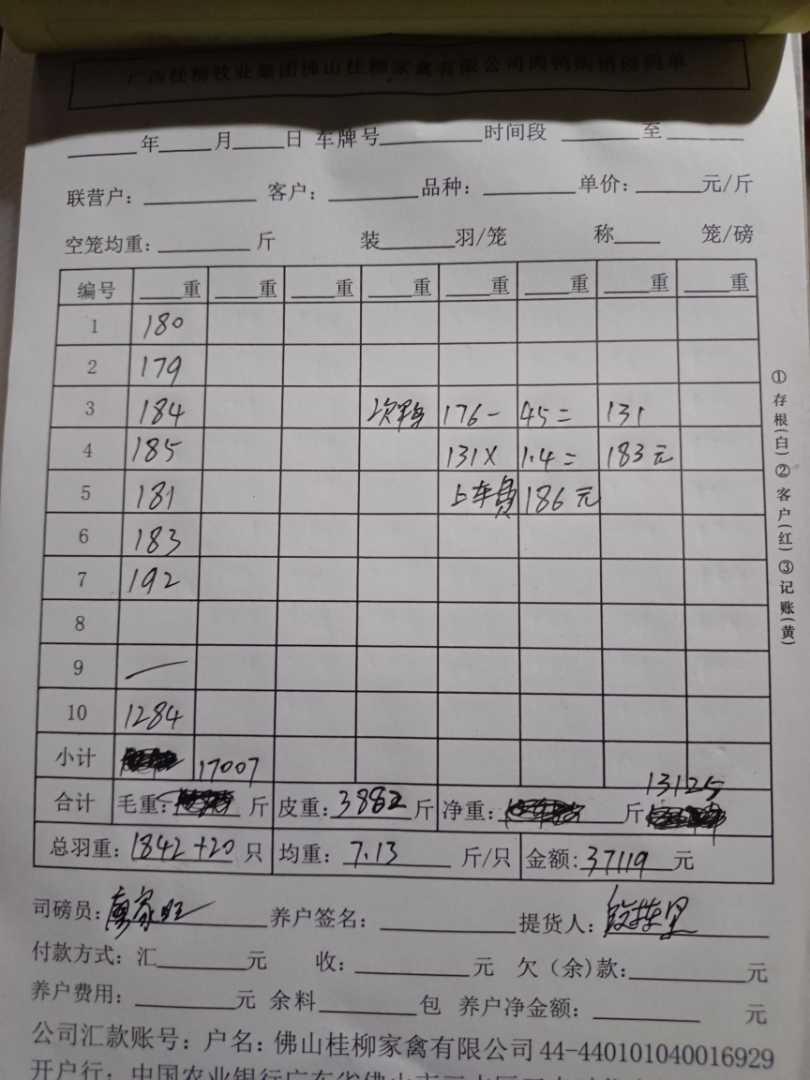 广西桂柳牧业集团佛山桂柳家禽有限公司肉鸭购销过磅单
____年____月____日 车牌号________ 时间段 ______至______
联营户:________ 客户:________ 品种:________ 单价:______元/斤
空笼均重:________斤 装______羽/笼 称____ 笼/磅
编号 ___重 ___重 ___重 ___重 ___重 ___重 ___重 ___重
1 180
2 179
3 184 次鸭 176- 45= 131
4 185 131× 1.4= 183元
5 181 上车费 186元
6 183
7 192
8
9 —
10 1284
小计 17007
13125
合计 毛重: 斤 皮重:3882斤 净重: 斤
总羽重:1842+20 只 均重:7.13 斤/只 金额:37119元
司磅员: 养户签名:________ 提货人:
付款方式:汇______元 收:________元 欠(余)款:________元
养户费用:______元 余料______包 养户净金额:________元
公司汇款账号:户名:佛山桂柳家禽有限公司44-440101040016929
开户行:中国农业银行广东省佛山市三水区
①存根(白)②客户(红)③记账(黄)